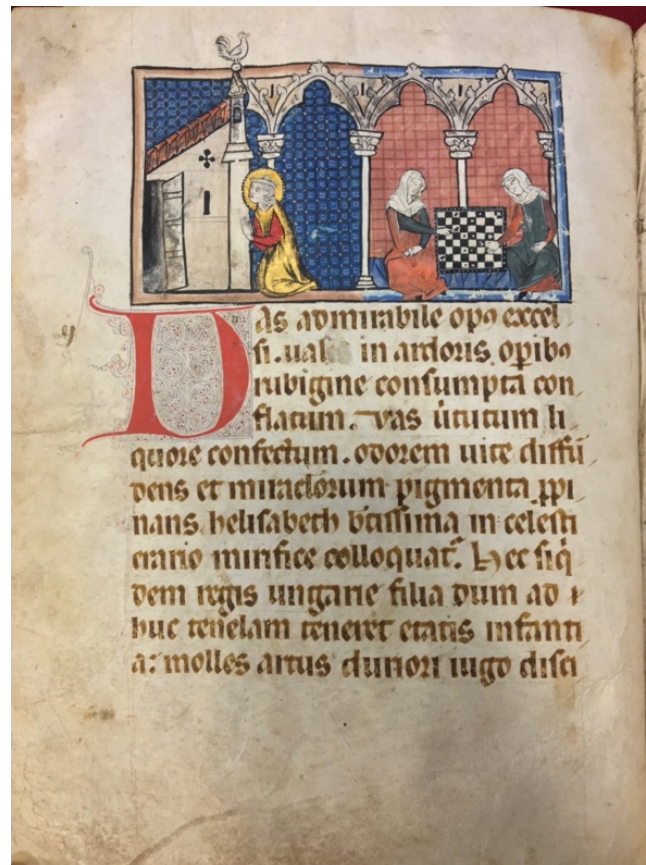 Das admirabile op⁹ excel
si. uas in ardoris op̄ib⁹
rubigine consumpta con
flatum. vas u̇tutum li
quore confectum. odorem uite diffū
dens et miraclorum pigmenta ꝓpi
nans, helisabeth btissima in celesti
erario mirifice colloquat᷑. Hec siq̇
dem regis ungarie filia dum ad
huc tenelam teneret etatis infanti
a: molles artus duriori iugo disci